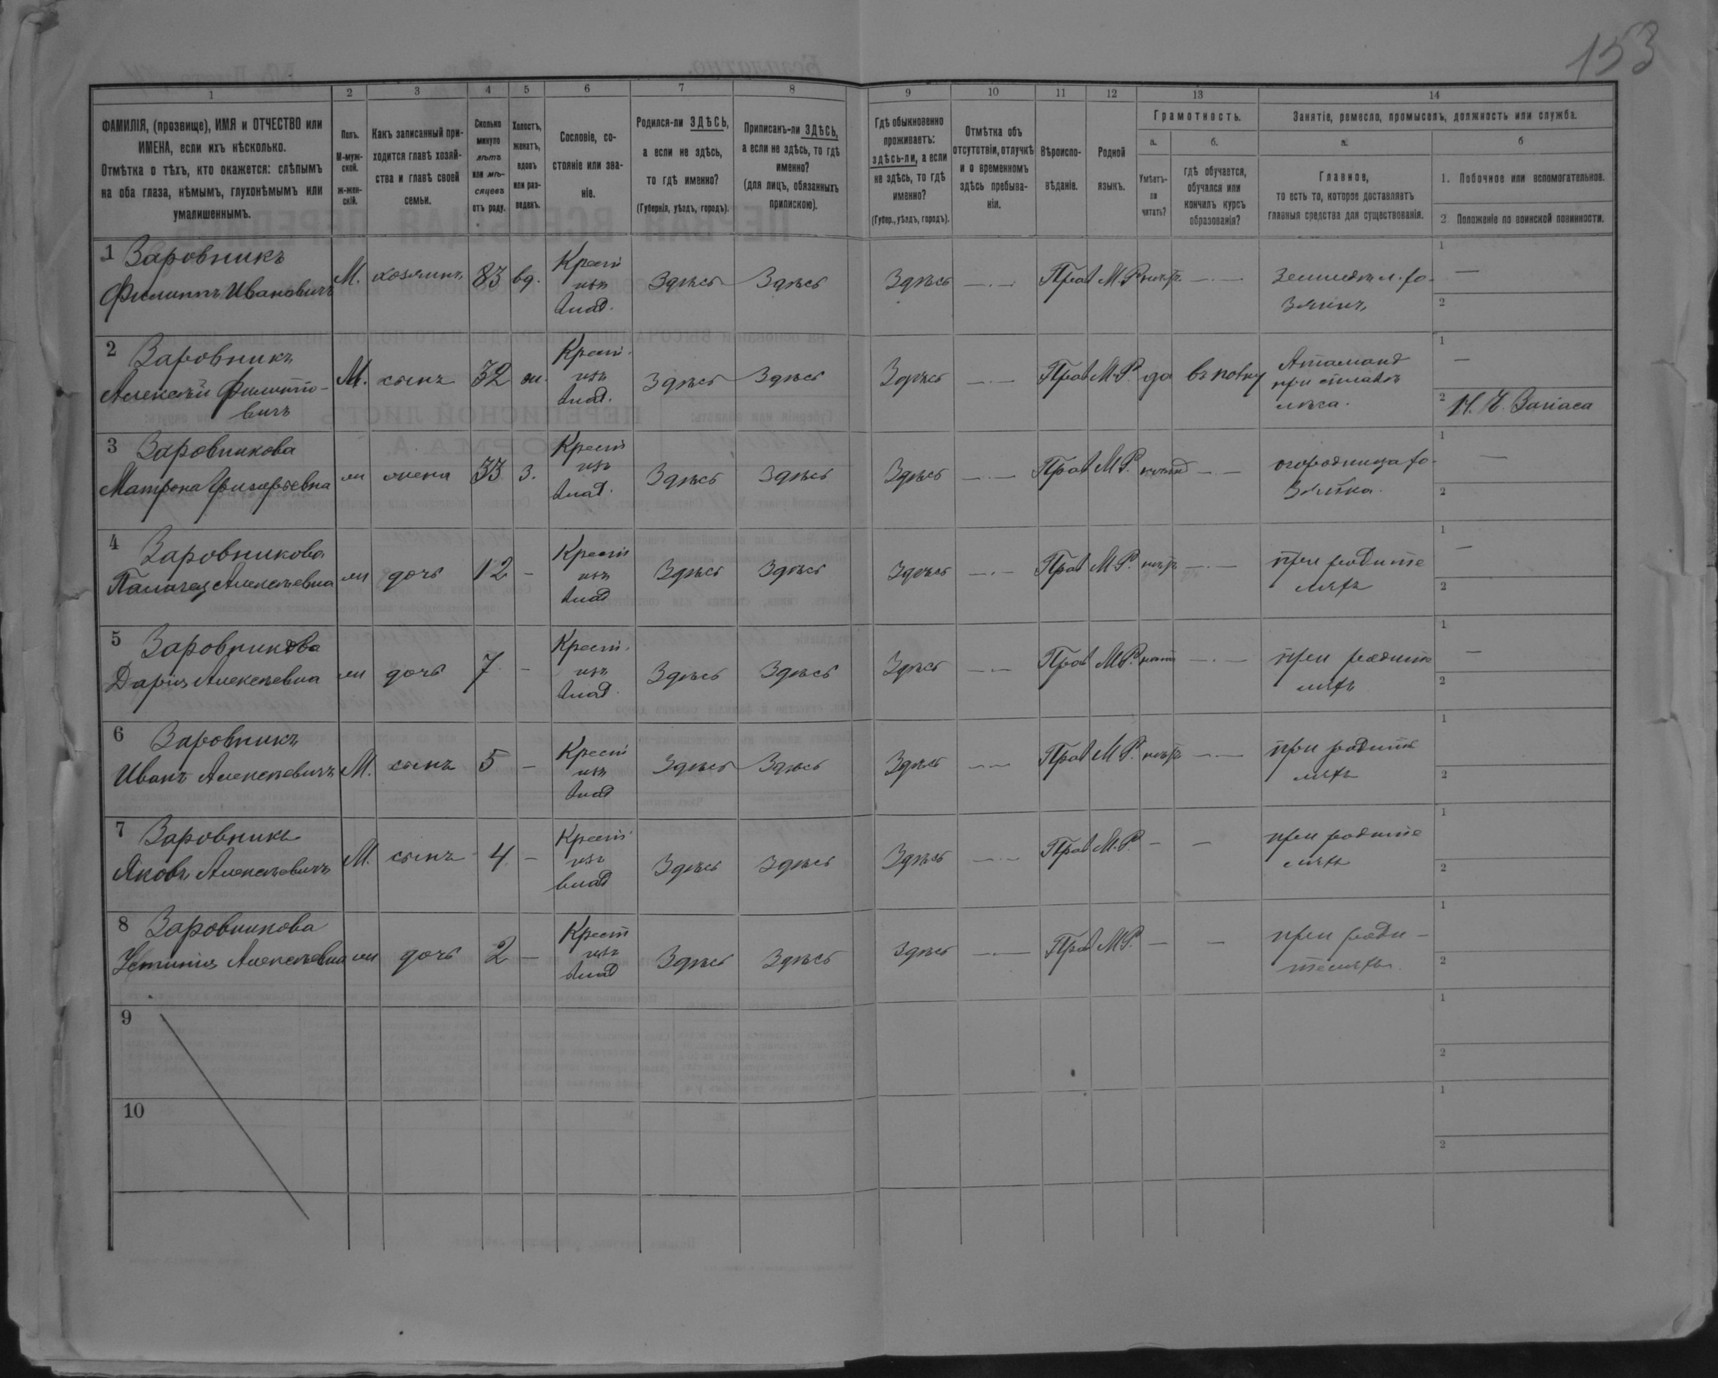 153
1 2 3 4 5 6 7 8 9 10 11 12 13 14
ФАМИЛІЯ, (прозвище), ИМЯ и ОТЧЕСТВО или
ИМЕНА, если ихъ нѣсколько.
Отмѣтка о тѣхъ, кто окажется: слѣпымъ
на оба глаза, нѣмымъ, глухонѣмымъ или
умалишеннымъ.
Полъ.
М-муж-
ской.
ж-жен-
скій.
Какъ записанный при-
ходится главѣ хозяй-
ства и главѣ своей
семьи.
Сколько
минуло
лѣтъ
или мѣ-
сяцевъ
отъ роду.
Холостъ,
женатъ,
вдовъ
или раз-
веденъ.
Сословіе, со-
стояніе или зва-
ніе.
Родился-ли ЗДѢСЬ,
а если не здѣсь,
то гдѣ именно?
(Губернія, уѣздъ, городъ).
Приписанъ-ли ЗДѢСЬ,
а если не здѣсь, то гдѣ
именно?
(для лицъ, обязанныхъ
припискою).
Гдѣ обыкновенно
проживаетъ:
здѣсь-ли, а если
не здѣсь, то гдѣ
именно?
(Губер., уѣздъ, городъ).
Отмѣтка объ
отсутствіи, отлучкѣ
и о временномъ
здѣсь пребыва-
ніи.
Вѣроиспо-
вѣданіе.
Родной
языкъ.
Грамотность.
а.
Умѣетъ-
ли
читать?
б.
гдѣ обучается,
обучался или
кончилъ курсъ
образованія?
Занятіе, ремесло, промыселъ, должность или служба.
а
Главное,
то есть то, которое доставляетъ
главныя средства для существованія.
б
1. Побочное или вспомогательное.
2 Положеніе по воинской повинности.
1 Заровникъ
Филиппъ Ивановичъ М. хозяинъ 83 вд. Крест изъ влад. Здѣсь Здѣсь Здѣсь — Прав М.Р. — земледѣл. хо-
зяинъ
1 —
2
2 Заровникъ
Алексѣй Филиппо-
вичъ М. сынъ 32 ж. Крест. изъ влад. Здѣсь Здѣсь Здѣсь — Прав М.Р. да
1 —
2
3 Заровникова
Матрона Григорьевна ж жена 33 з. Крест изъ влад. Здѣсь Здѣсь Здѣсь — Прав М.Р. — огородница хо-
зяйка
1 —
2
4 Заровникова
Палагея Алексѣевна ж дочь 12 — Крест изъ влад Здѣсь Здѣсь Здѣсь — Прав М.Р. — при родите
ляхъ
1 —
2
5 Заровникова
Дарья Алексѣевна ж дочь 7 — Крест. изъ влад. Здѣсь Здѣсь Здѣсь — Прав М.Р. — при родите
ляхъ
1 —
2
6 Заровникъ
Иванъ Алексѣевичъ М. сынъ 5 — Крест изъ влад Здѣсь Здѣсь Здѣсь — Прав М.Р. — при родите
ляхъ
1
2
7 Заровникъ
Яковъ Алексѣевичъ М. сынъ 4 — Крест изъ влад Здѣсь Здѣсь Здѣсь — Прав М.Р. — — при родите
ляхъ
1
2
8 Заровникова
Устинія Алексѣевна ж дочь 2 — Крест изъ влад Здѣсь Здѣсь Здѣсь — Прав М.Р. — — при роди-
теляхъ
1
2
9
1
2
10
1
2